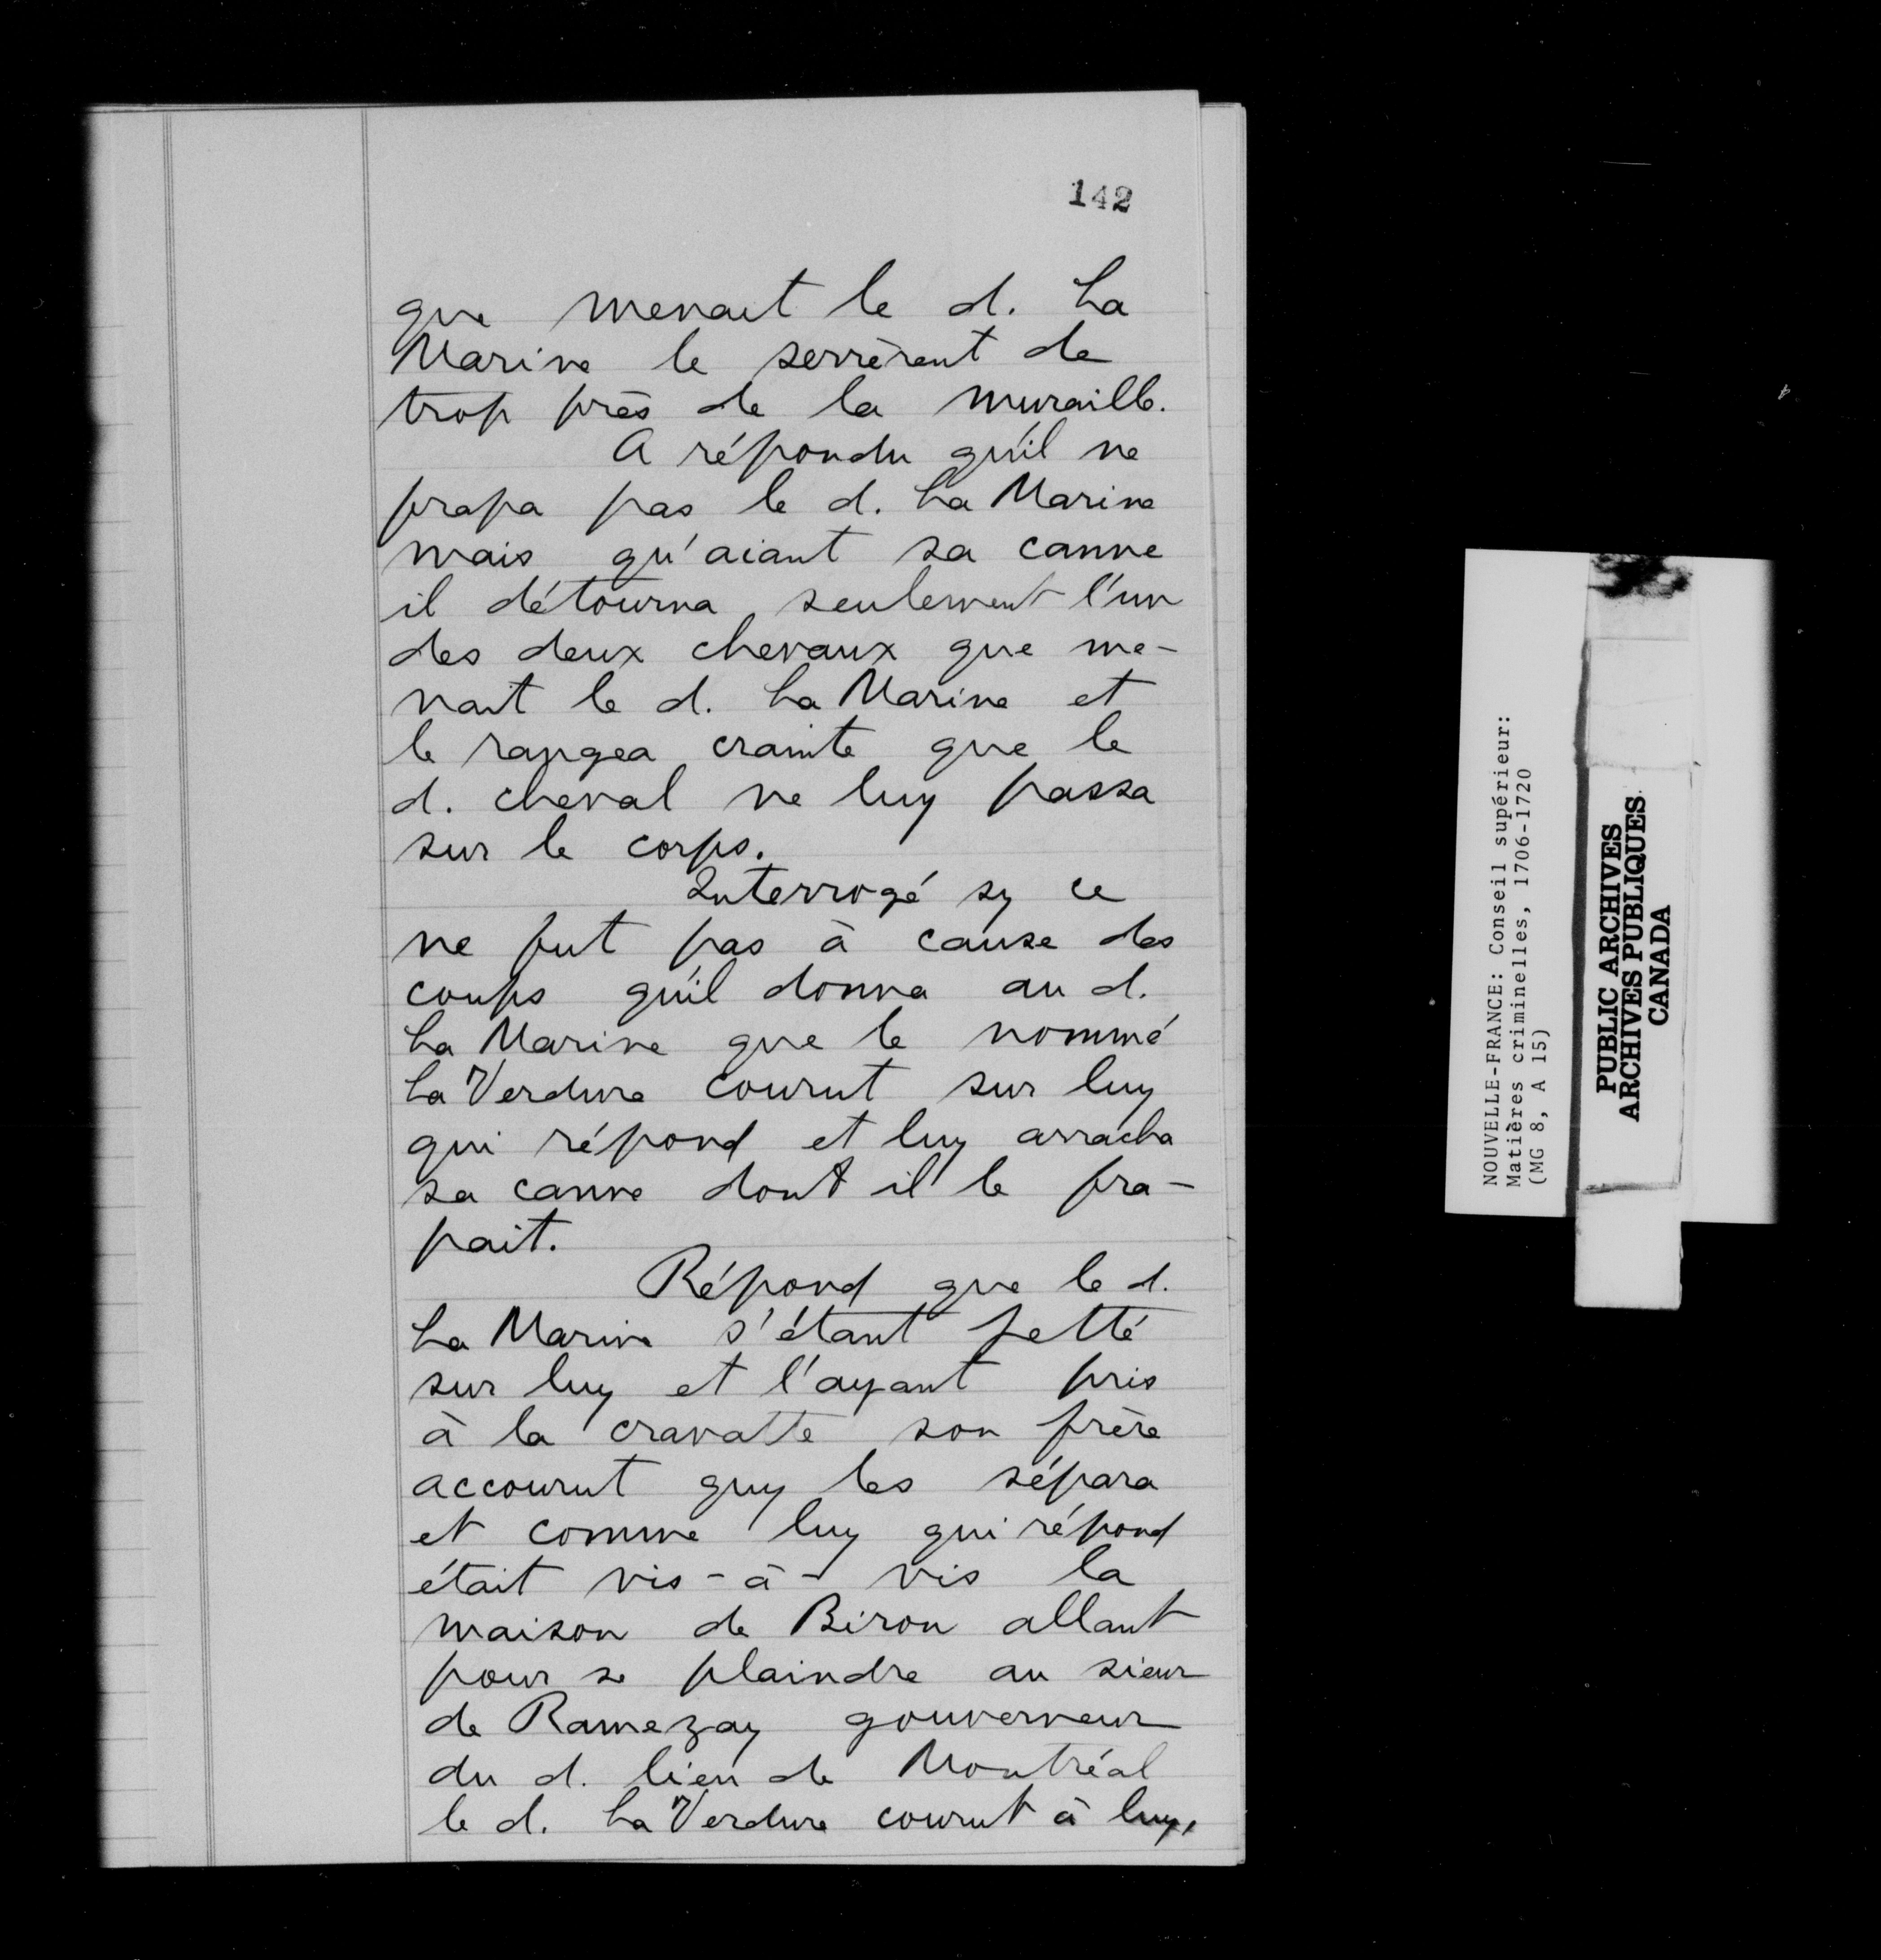 142
que menait le d. La
Marine le serrèrent de
trop près de la muraille.
A répondu qu'il ne
frapa pas le d. La Marine
mais qu'aiant sa canne
il détourna seulement l'un
des deux chevaux que me-
nait le d. La Marine et
le rangea crainte que le
d. cheval ne luy passa
sur le corps.
Interrogé sy ce
ne fut pas à cause des
coups qu'il donna au d.
La Marine que le nommé
La Verdure courut sur luy
qui répond et luy arracha
sa canne dont il le fra-
pait.
Répond que le d.
La Marine s'étant jetté
sur luy et l'ayant pris
à la cravatte son frère
accourut quy les sépara
et comme luy qui répond
était vis-à-vis la
maison de Biron allant
pour se plaindre au sieur
de Ramezay gouverneur
du d. lieu de Montréal
le d. La Verdure courut à luy,
NOUVELLE-FRANCE: Conseil supérieur:
Matières criminelles, 1706-1720
(MG 8, A 15)
PUBLIC ARCHIVES
ARCHIVES PUBLIQUES
CANADA